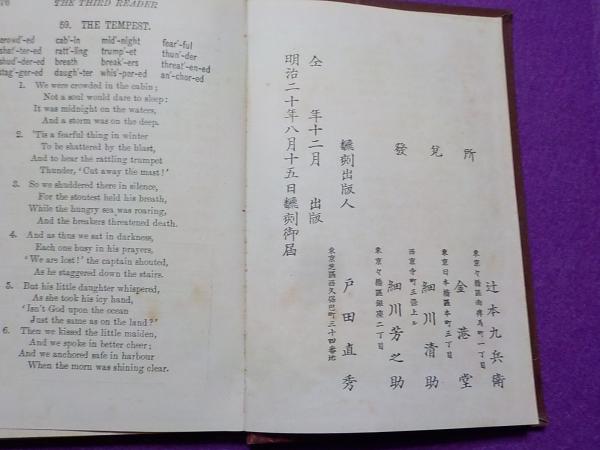 76 THE THIRD READER
59. THE TEMPEST.
crowd'-ed cab'-in mid'-night fear'-ful
shat'-ter-ed ratt'-ling trump'-et thun'-der
shud'-der-ed breath break'-ers threat'-en-ed
stag'-ger-ed daugh'-ter whis'-per-ed an'-chor-ed
1. We were crowded in the cabin;
Not a soul would dare to sleep:
It was midnight on the waters,
And a storm was on the deep.
2. 'Tis a fearful thing in winter
To be shattered by the blast,
And to hear the rattling trumpet
Thunder, 'Cut away the mast!'
3. So we shuddered there in silence,
For the stoutest held his breath,
While the hungry sea was roaring,
And the breakers threatened death.
4. And as thus we sat in darkness,
Each one busy in his prayers,
'We are lost!' the captain shouted,
As he staggered down the stairs.
5. But his little daughter whispered,
As she took his icy hand,
'Isn't God upon the ocean
Just the same as on the land?'
6. Then we kissed the little maiden,
And we spoke in better cheer;
And we anchored safe in harbour
When the morn was shining clear.
明治二十年八月十五日飜刻御届
仝 年十二月 出版
飜刻出版人
東京芝區西久保巴町三十四番地
戸田直秀
發兌所
東京々橋區銀座二丁目
細川芳之助
西京寺町三条上ル
細川清助
東京日本橋區本町三丁目
金港堂
東京々橋區南傳馬町一丁目
辻本九兵衛